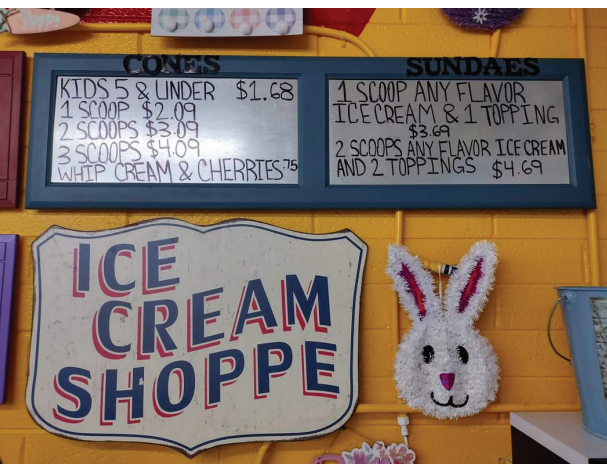 Poppy
CONES
KIDS 5 & UNDER $1.68
1 SCOOP $2.09
2 SCOOPS $3.09
3 SCOOPS $4.09
WHIP CREAM & CHERRIES .75
SUNDAES
1 SCOOP ANY FLAVOR
ICE CREAM & 1 TOPPING
$3.69
2 SCOOPS ANY FLAVOR ICE CREAM
AND 2 TOPPINGS $4.69
ICE
CREAM
SHOPPE